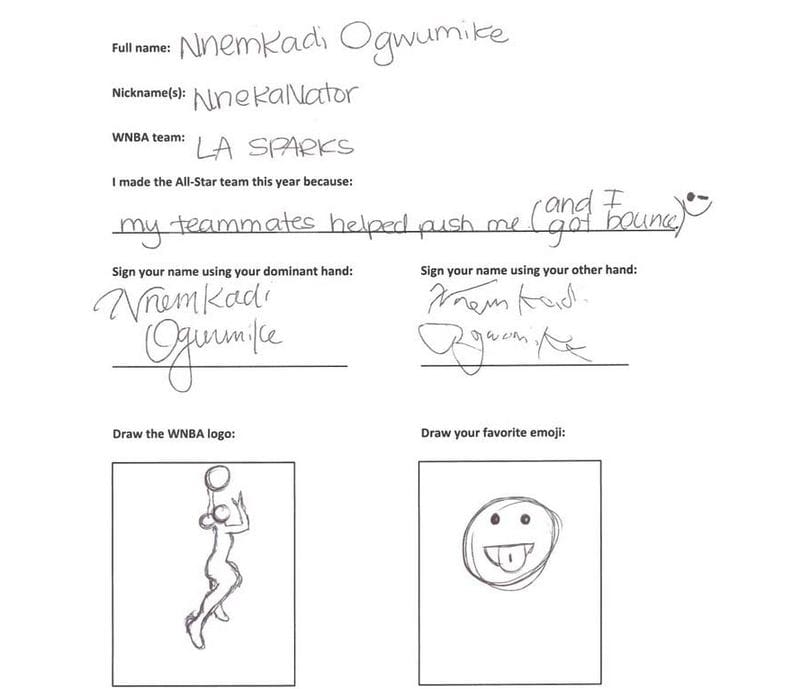 Full name: Nnemkadi Ogwumike
Nickname(s): NnekaNator
WNBA team: LA SPARKS
I made the All-Star team this year because:
my teammates helped push me (and I got bounce)
Sign your name using your dominant hand: Sign your name using your other hand:
Nnemkadi Nnemkadi
Ogwumike Ogwumike
Draw the WNBA logo: Draw your favorite emoji: